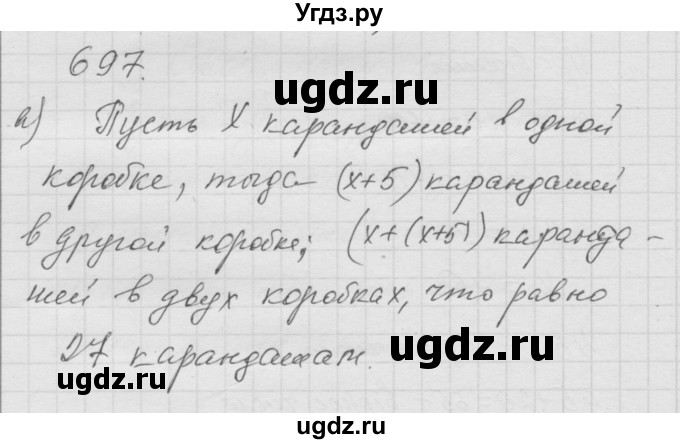 Угдз.ру
697.
ugdz.ru
а) Пусть X карандашей в одной
коробке, тогда (x+5) карандашей
ugdz.ru
в другой коробке; (x+(x+5)) каранда-
шей в двух коробках, что равно
27 карандашам.
ugdz.ru
ugdz.ru
ugdz.ru